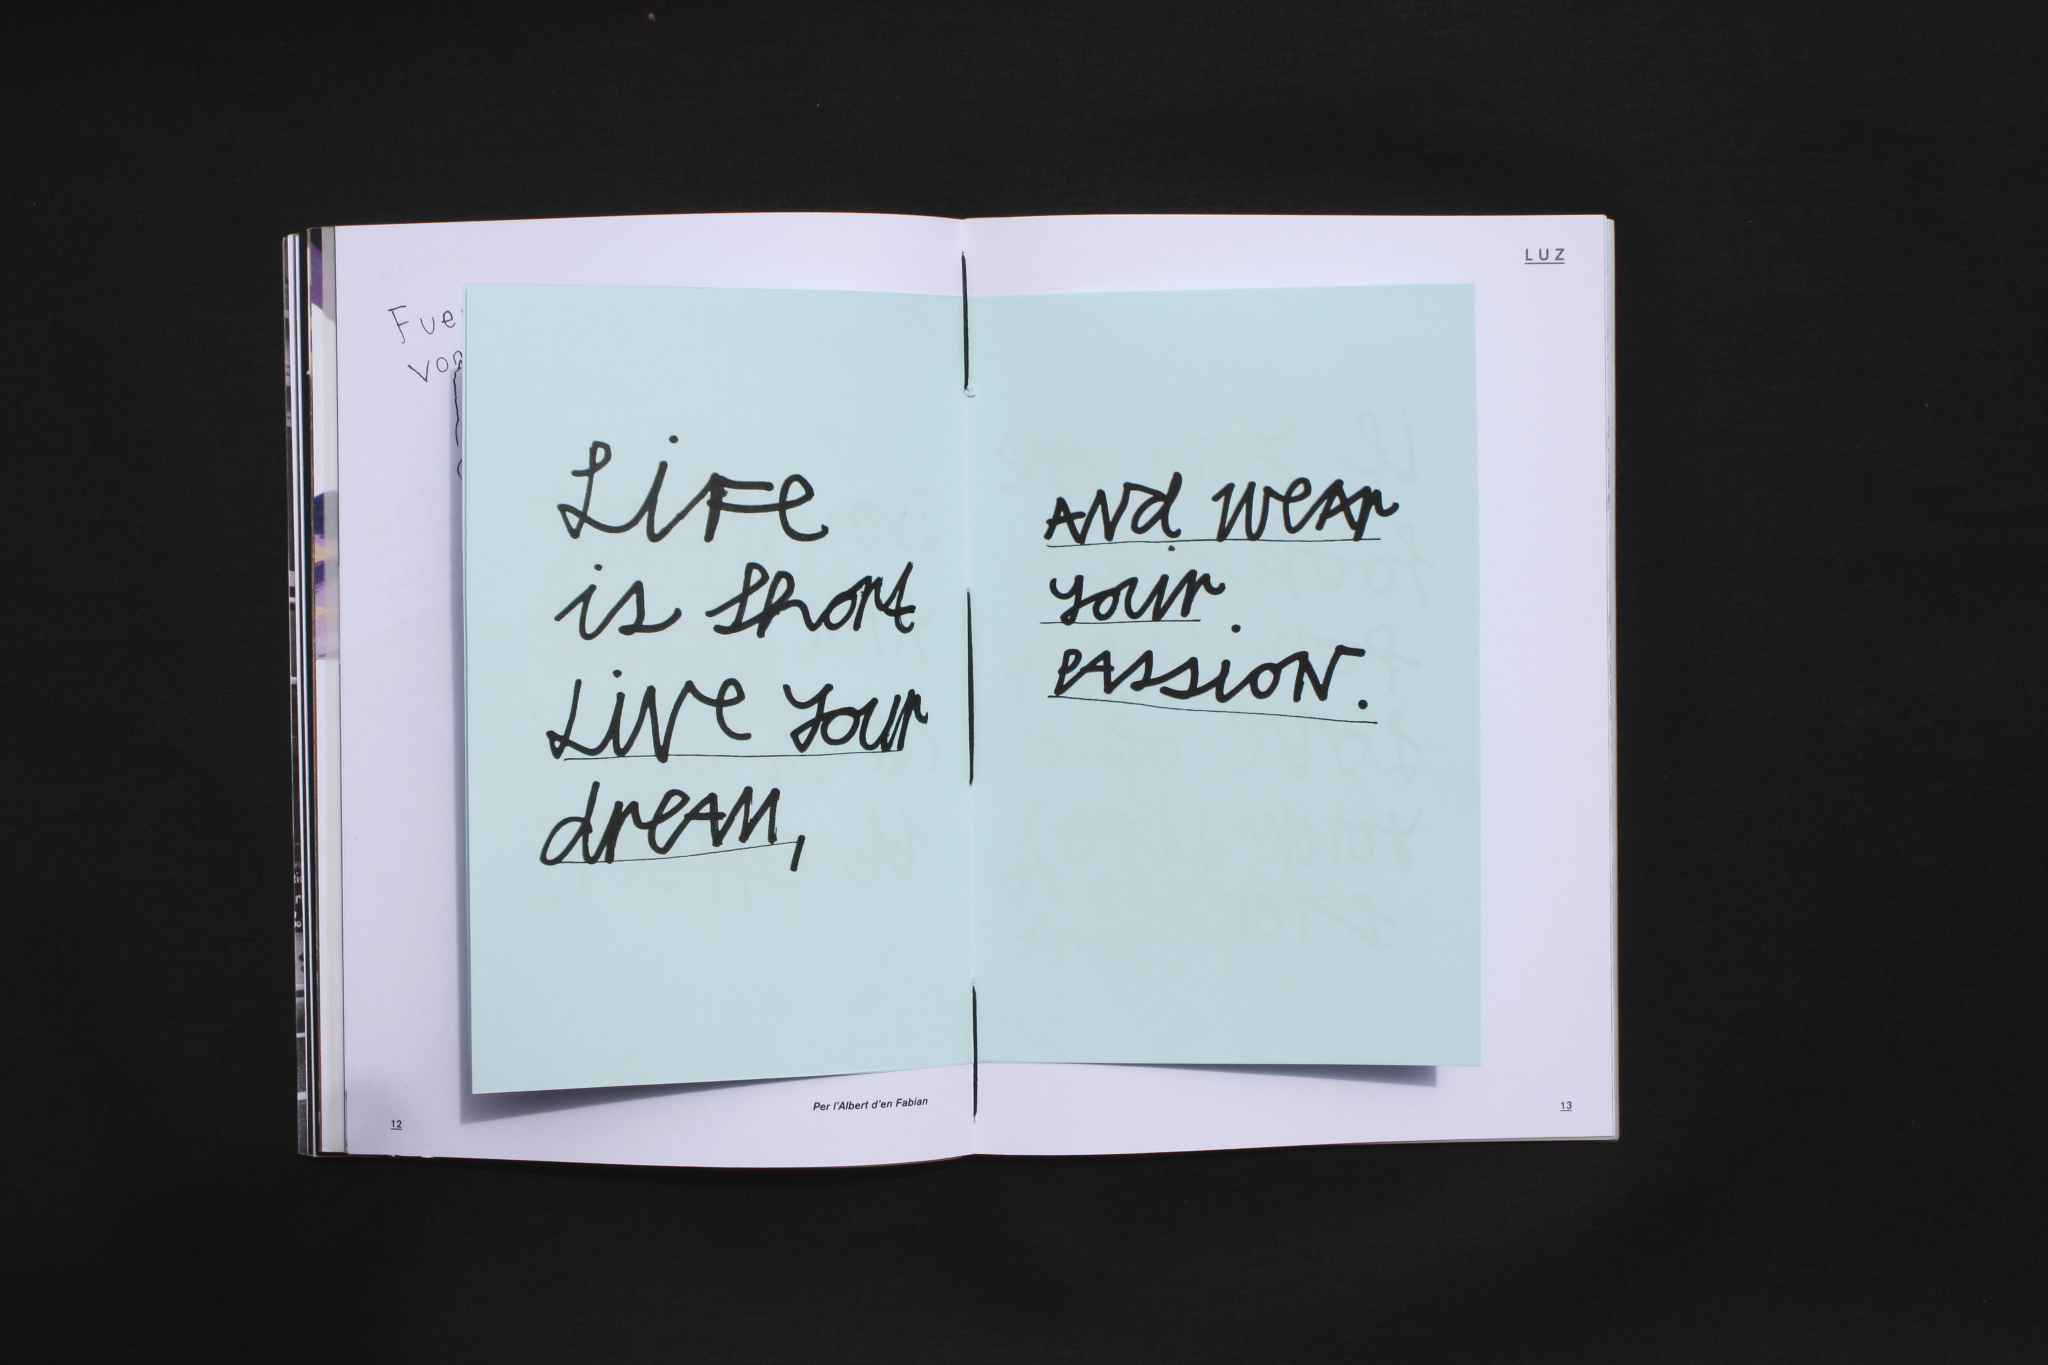 LUZ
Life
is short
Live your
dream,
And wear
your
passion.
Per l'Albert d'en Fabian
12
13